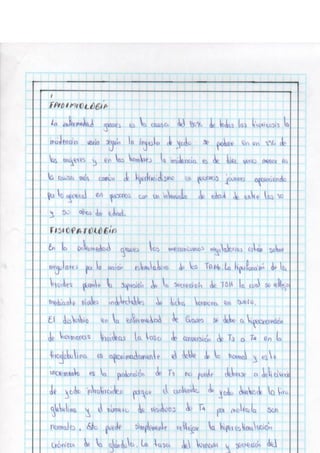 EPIDEMIOLOGÍA
La enfermedad graves es la causa del 80% de todas las tirotoxicosis la
incidencia varía según la ingesta de yodo se padece en un 5% de
las mujeres y en los hombres la incidencia es de diez veces menor es
la causa más común de hipertiroidismo en pacientes jóvenes apareciendo
por lo general en pacientes con un intervalo de edad de entre los 20
y 50 años de edad.
FISIOPATOLOGÍA
En la enfermedad graves los mecanismos reguladores están sobre
regulares por la unión de los TRAb. La hiperfunción de la
tiroides permite la supresión de la secreción de TSH la cual se refleja
mediante niveles indetectables de dicha hormona en suero.
El disturbio en la enfermedad de Graves se debe a hipersecreción
de hormonas tiroideas la tasa de conversión de T3 a T4 en la
tiroglobulina es aproximadamente el doble de lo normal y este
incremento es la producción de T3 no puede deberse a deficiencia
de yodo intratiroideo porque el contenido de yodo dentro de la tiro
globulina y el número de residuos de T4 por molécula son
normales, ésto puede simplemente reflejar la hiperestimulación
crónica de la glándula. La tasa del y secreción del